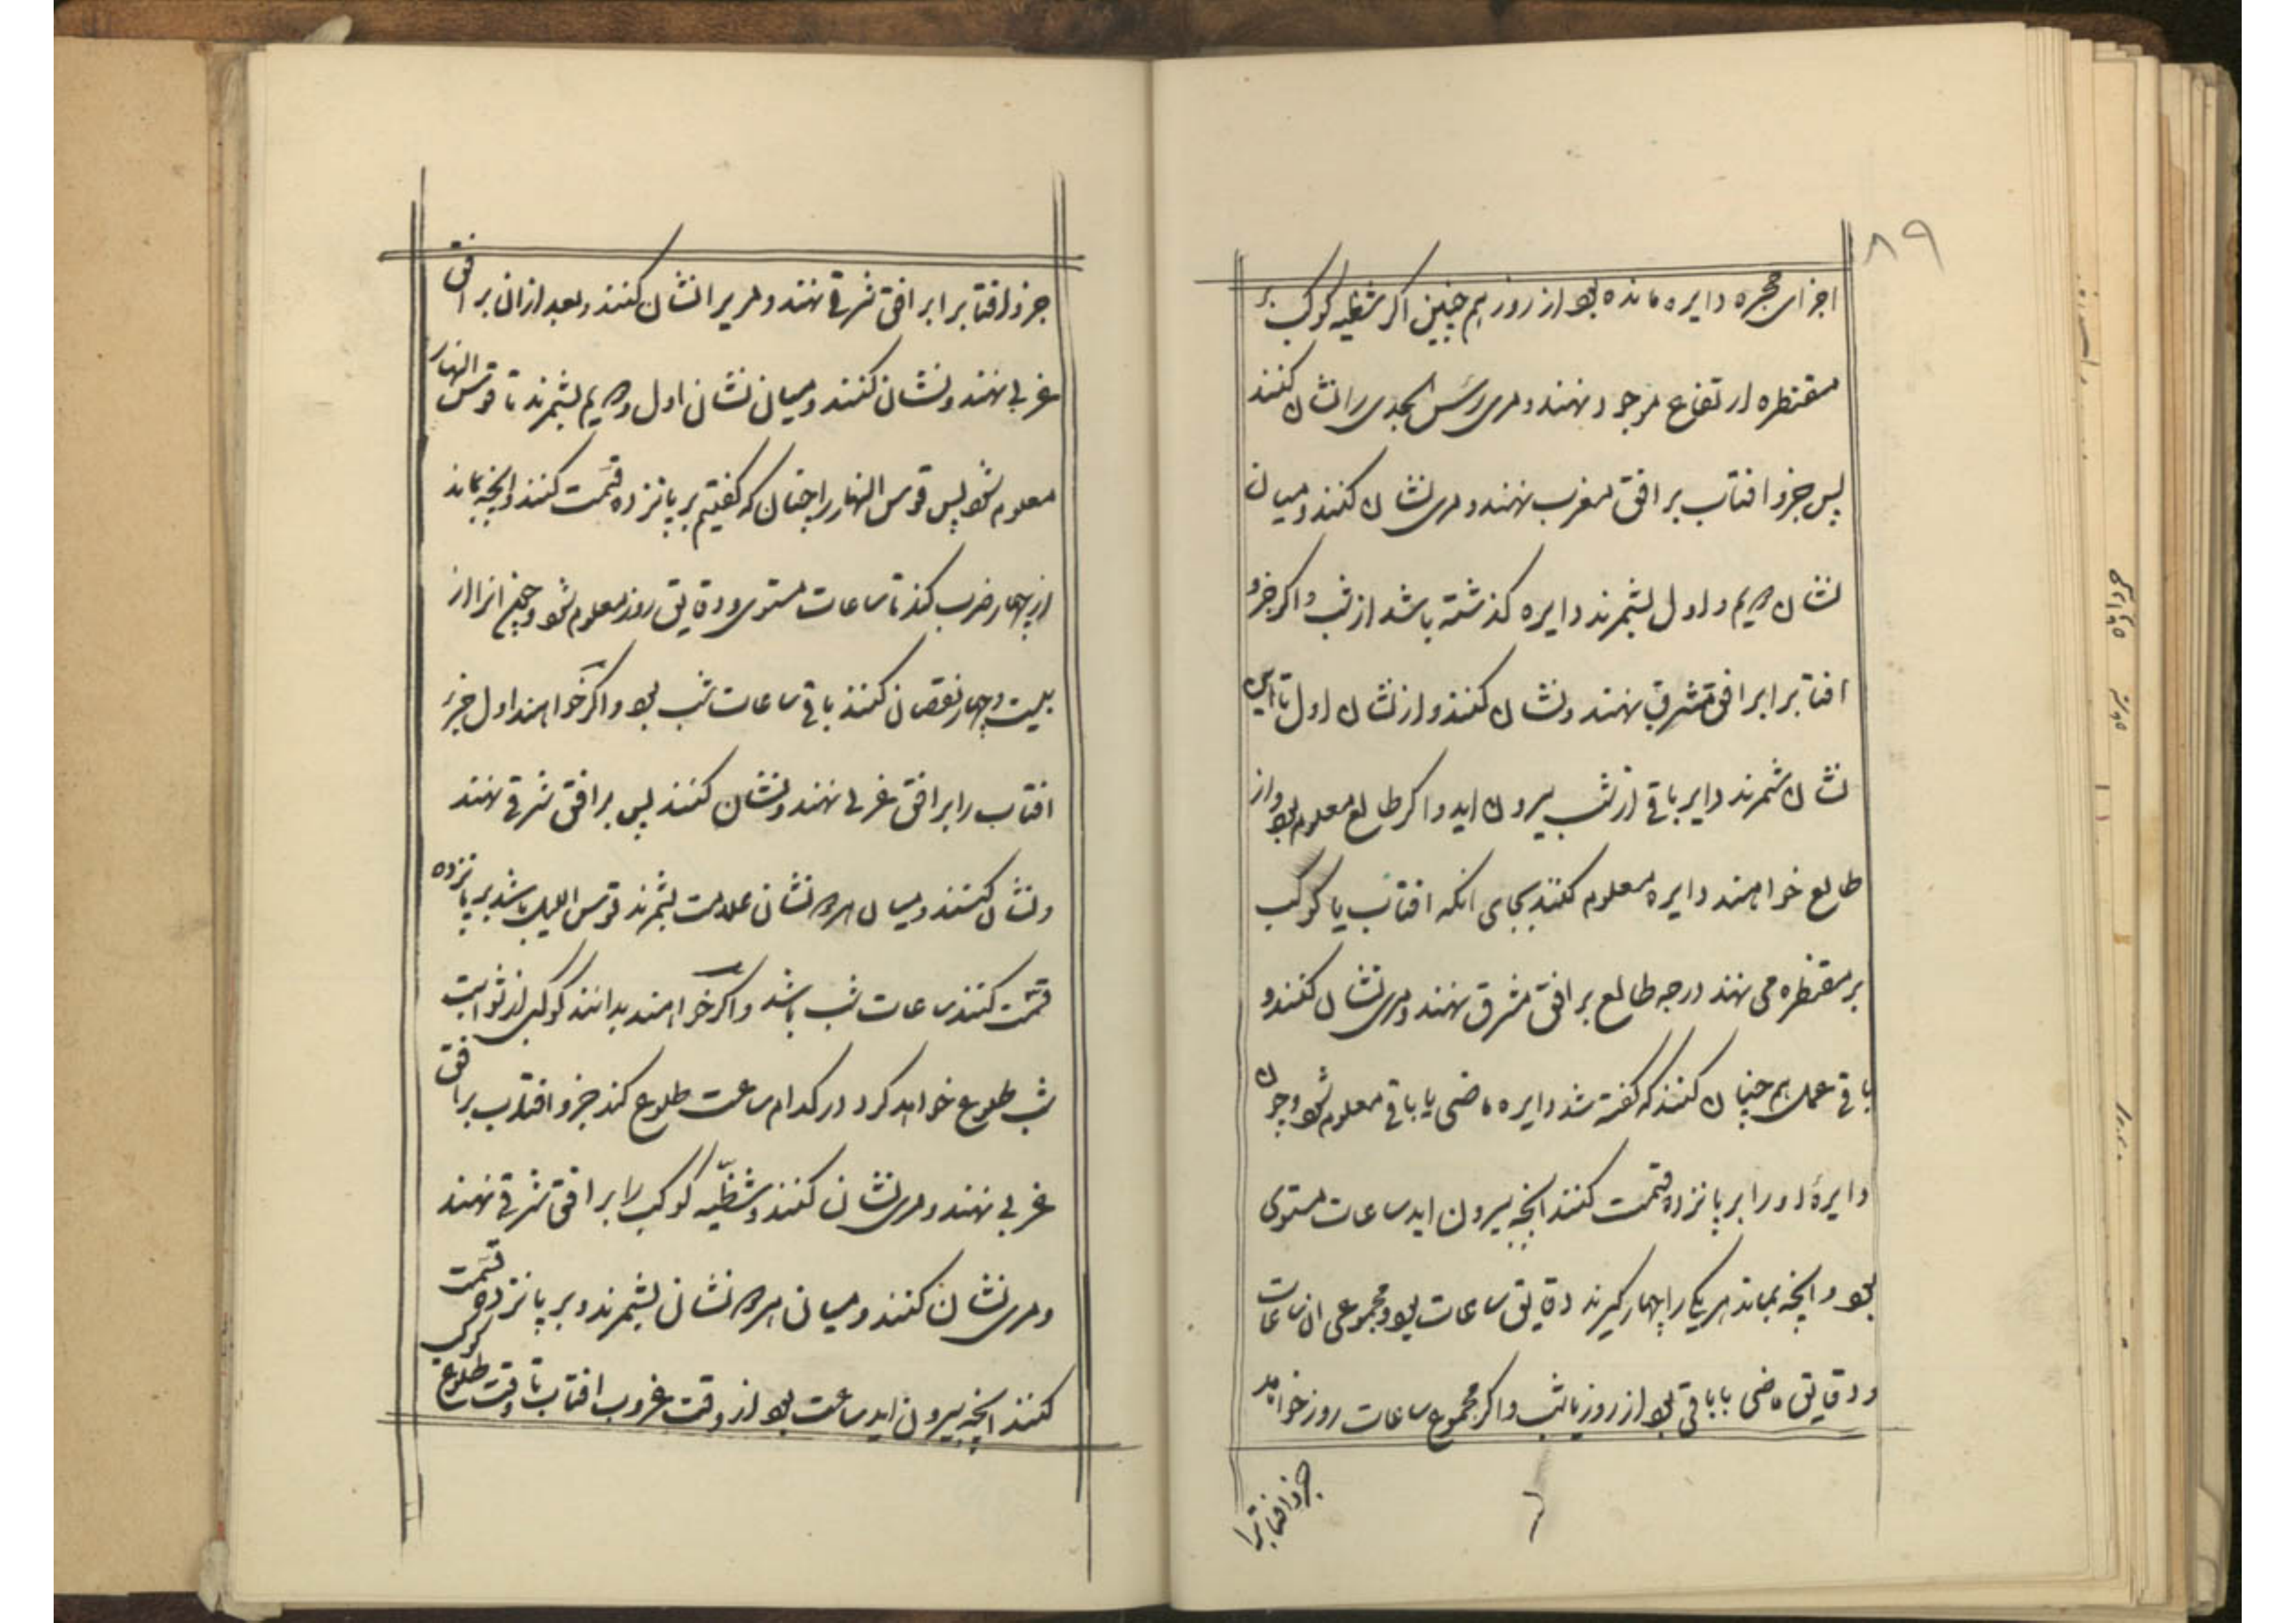 ۸۹
اجزای حجره دایره مانده بود از روز هم چنین اگر شظیه کوکب بر
مقنطره ارتفاع موجود نهند و مری رأس الجدی را نشان کنند
پس جزو افتاب بر افق مغرب نهند و مری نشان کنند و میان
نشان دویم و اول بشمرند دایره کذشته باشد از شب و اکر جزو
افتابرا بر افق مشرق نهند و نشان کنند و از نشان اول تا این
نشان شمرند دایر باقی از شب بیرون اید و اکر طالع معلوم بود و از
طالع خواهند دایره معلوم کنند بجای انکه افتاب یا کوکب
بر مقنطره می نهند درجه طالع بر افق مشرق نهند و مری نشان کنند و
باقی عمل هم چنان کنند که کفته شد دایره ماضی یا باقی معلوم شود و چون
دایره او را بر پانزده قسمت کنند انچه بیرون اید ساعات مستوی
بود و انچه بماند هر یک را چهار کیرند دقایق ساعات بود و مجموعی ان ساعات
و دقایق ماضی یا باقی بود از روز یا شب و اکر مجموع ساعات روز خواهند
جزو افتابرا
جزو افتابرا بر افق شرقی نهند و مریرا نشان کنند و بعد از ان بر افق
غربی نهند و نشان کنند و میان نشان اول و دویم بشمرند تا قوس النهار
معلوم شود پس قوس النهار را چنان که کفتیم بر پانزده قسمت کنند و انچه بماند
در چهار ضرب کند تا ساعات مستوی و دقایق روز معلوم شود و چون انرا از
بیست و چهار نقصان کنند باقی ساعات شب بود و اکر خواهند اول جزء
افتاب را بر افق غربی نهند و نشان کنند پس بر افق شرقی نهند
و نشان کنند و میان هر دو نشان علامت بشمرند قوس اللیل باشد بر پانزده
قسمت کنند ساعات شب باشد و اکر خواهند بدانند کوکبی از ثوابت
شب طلوع خواهد کرد در کدام ساعت طلوع کند جزو افتاب بر افق
غربی نهند و مری نشان کنند و شظیّه کوکب را بر افق شرقی نهند
و مری نشان کنند و میان هر دو نشان بشمرند و بر پانزده قسمت
کنند انچه بیرون اید ساعت بود از وقت غروب افتاب تا وقت طلوع کوکب